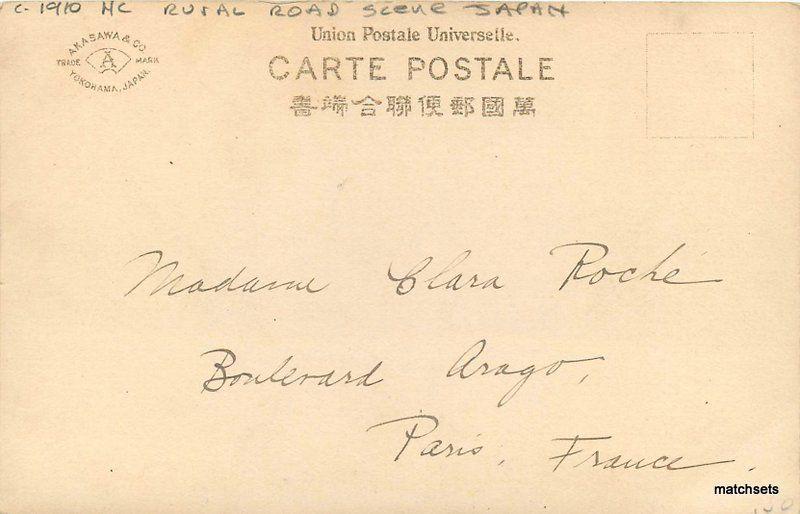 c-1910 HC RURAL ROAD SCENE JAPAN
AKASAWA & CO.
TRADE A MARK
YOKOHAMA, JAPAN.
Union Postale Universelle.
CARTE POSTALE
書端合聯便郵國萬
Madame Clara Roché
Boulevard Arago,
Paris, France.
matchsets